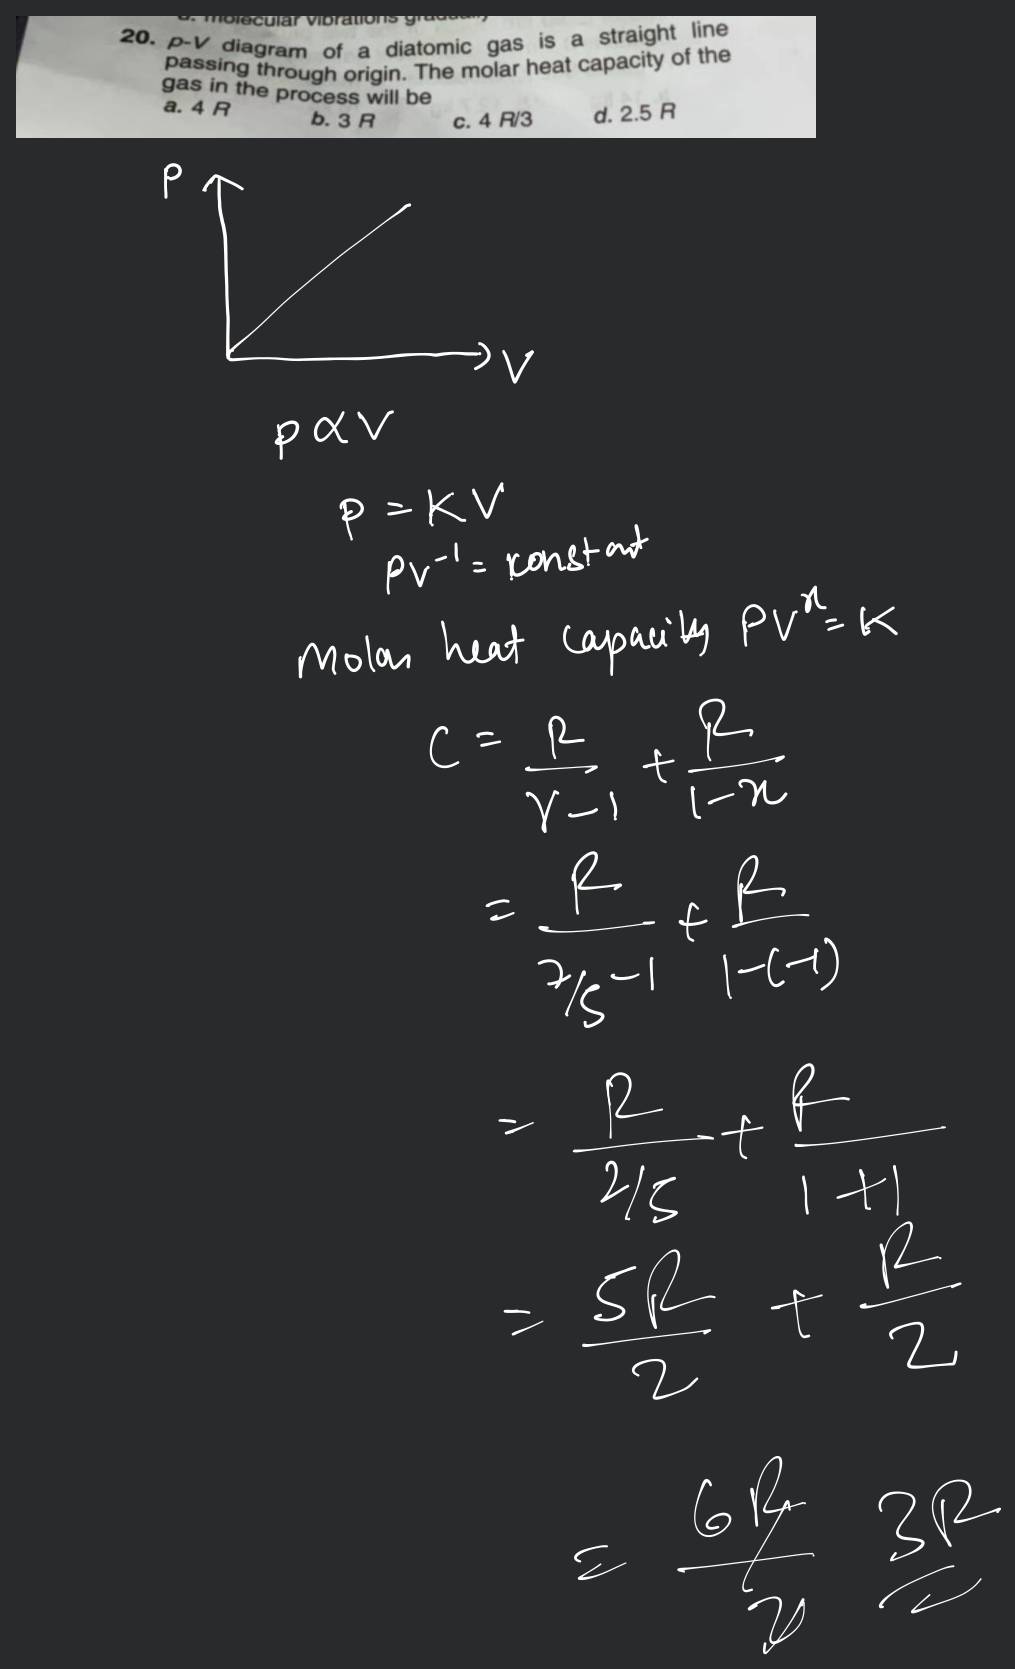 a. molecular vibrations gradually
20. p-V diagram of a diatomic gas is a straight line
passing through origin. The molar heat capacity of the
gas in the process will be
a. 4 R b. 3 R c. 4 R/3 d. 2.5 R
P
V
P ∝ V
P = KV
PV⁻¹ = constant
Molar heat capacity PVˣ = K
C = R/(γ-1) + R/(1-x)
= R/(7/5-1) + R/(1-(-1))
= R/(2/5) + R/(1+1)
= 5R/2 + R/2
= 6R/2 3R